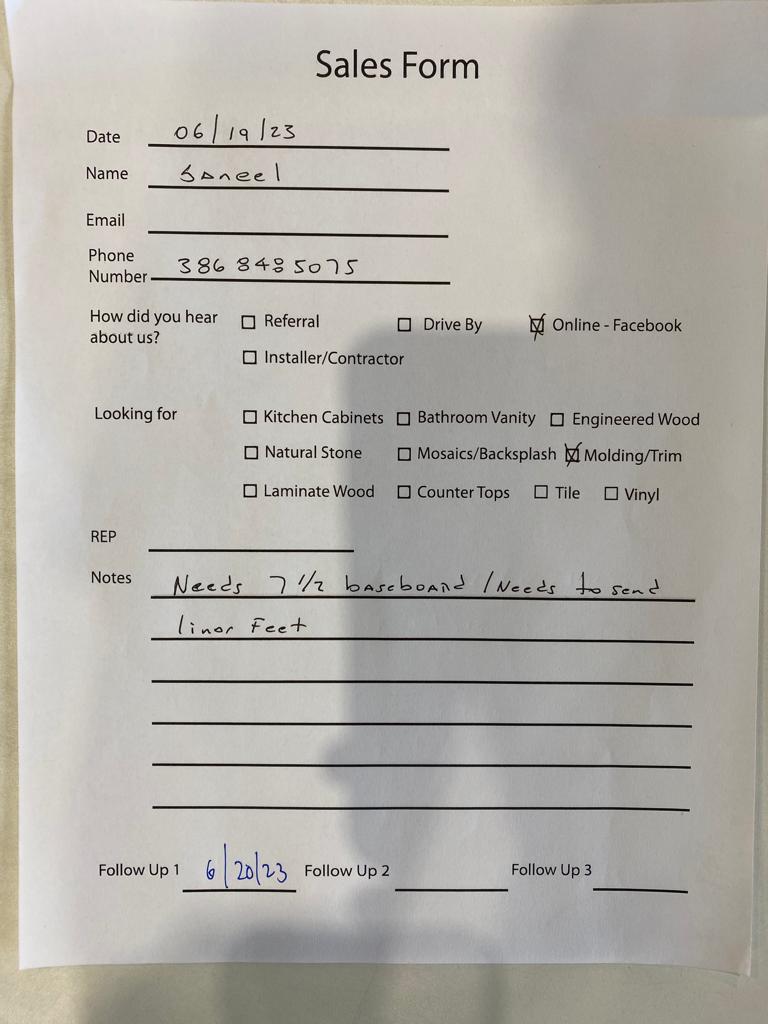 Sales Form
Date 06/19/23
Name
Email
Phone
Number 386 848 5075
How did you hear
about us?
☐ Referral ☐ Drive By ☒ Online - Facebook
☐ Installer/Contractor
Looking for ☐ Kitchen Cabinets ☐ Bathroom Vanity ☐ Engineered Wood
☐ Natural Stone ☐ Mosaics/Backsplash ☒ Molding/Trim
☐ Laminate Wood ☐ Counter Tops ☐ Tile ☐ Vinyl
REP
Notes Needs 7 1/2 baseboard / Needs to send
linor Feet
Follow Up 1 6/20/23 Follow Up 2 Follow Up 3